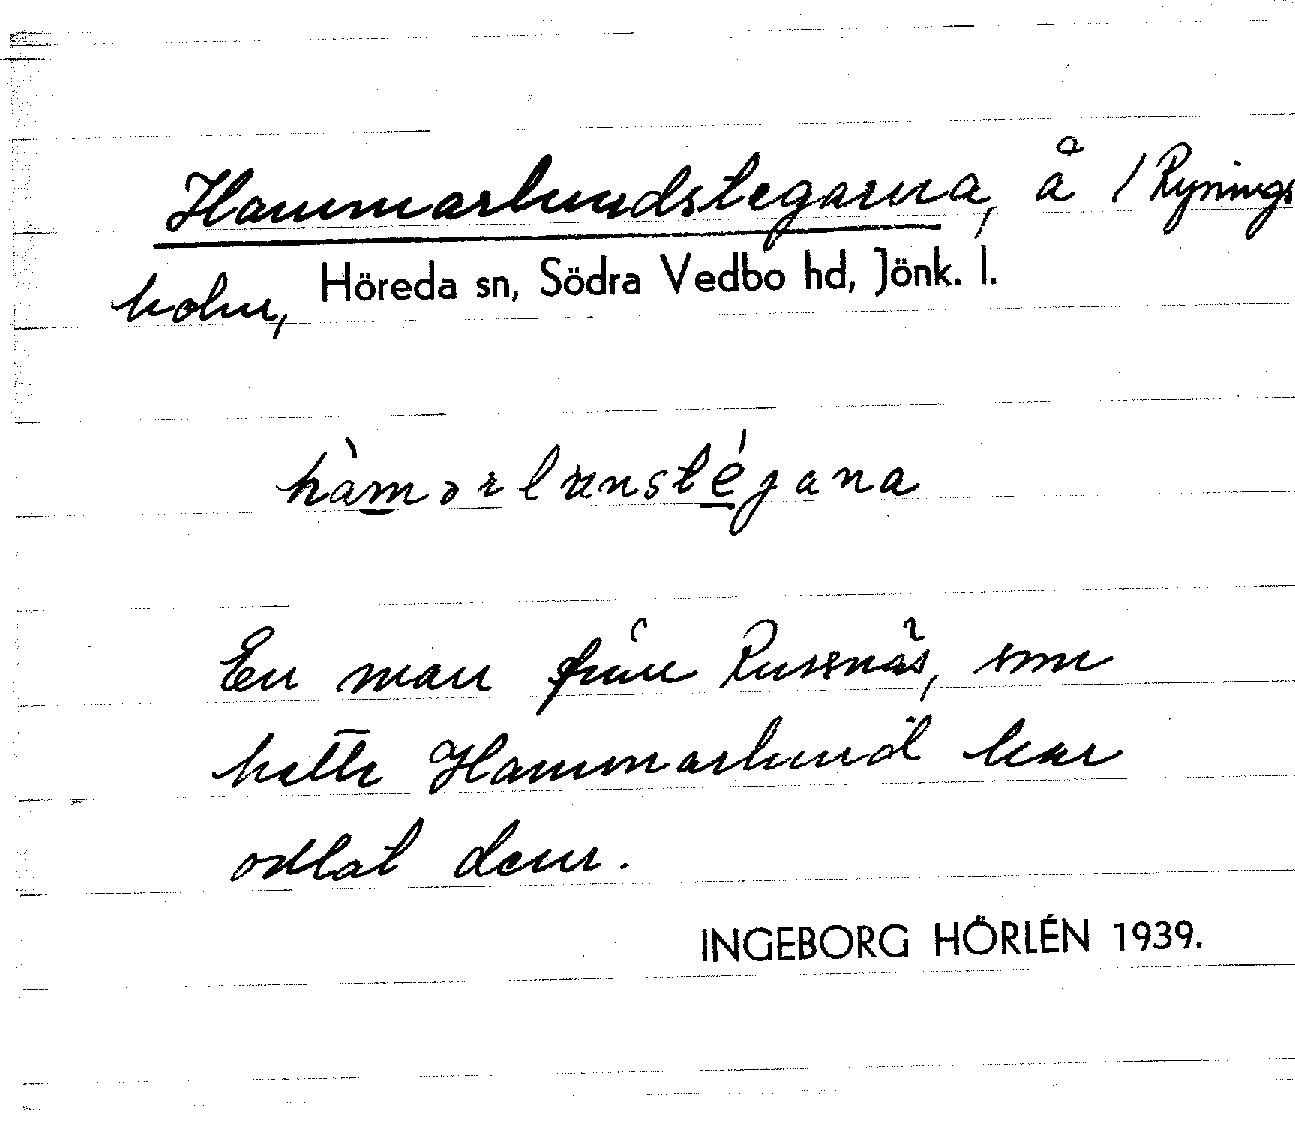 Hammarlundstegarna, å / Rynings
holm, Höreda sn, Södra Vedbo hd, Jönk. l.
hàmərlunstégana
En man från Rusenäs, som
hette Hammarlund har
odlat dem.
INGEBORG HÖRLÉN 1939.